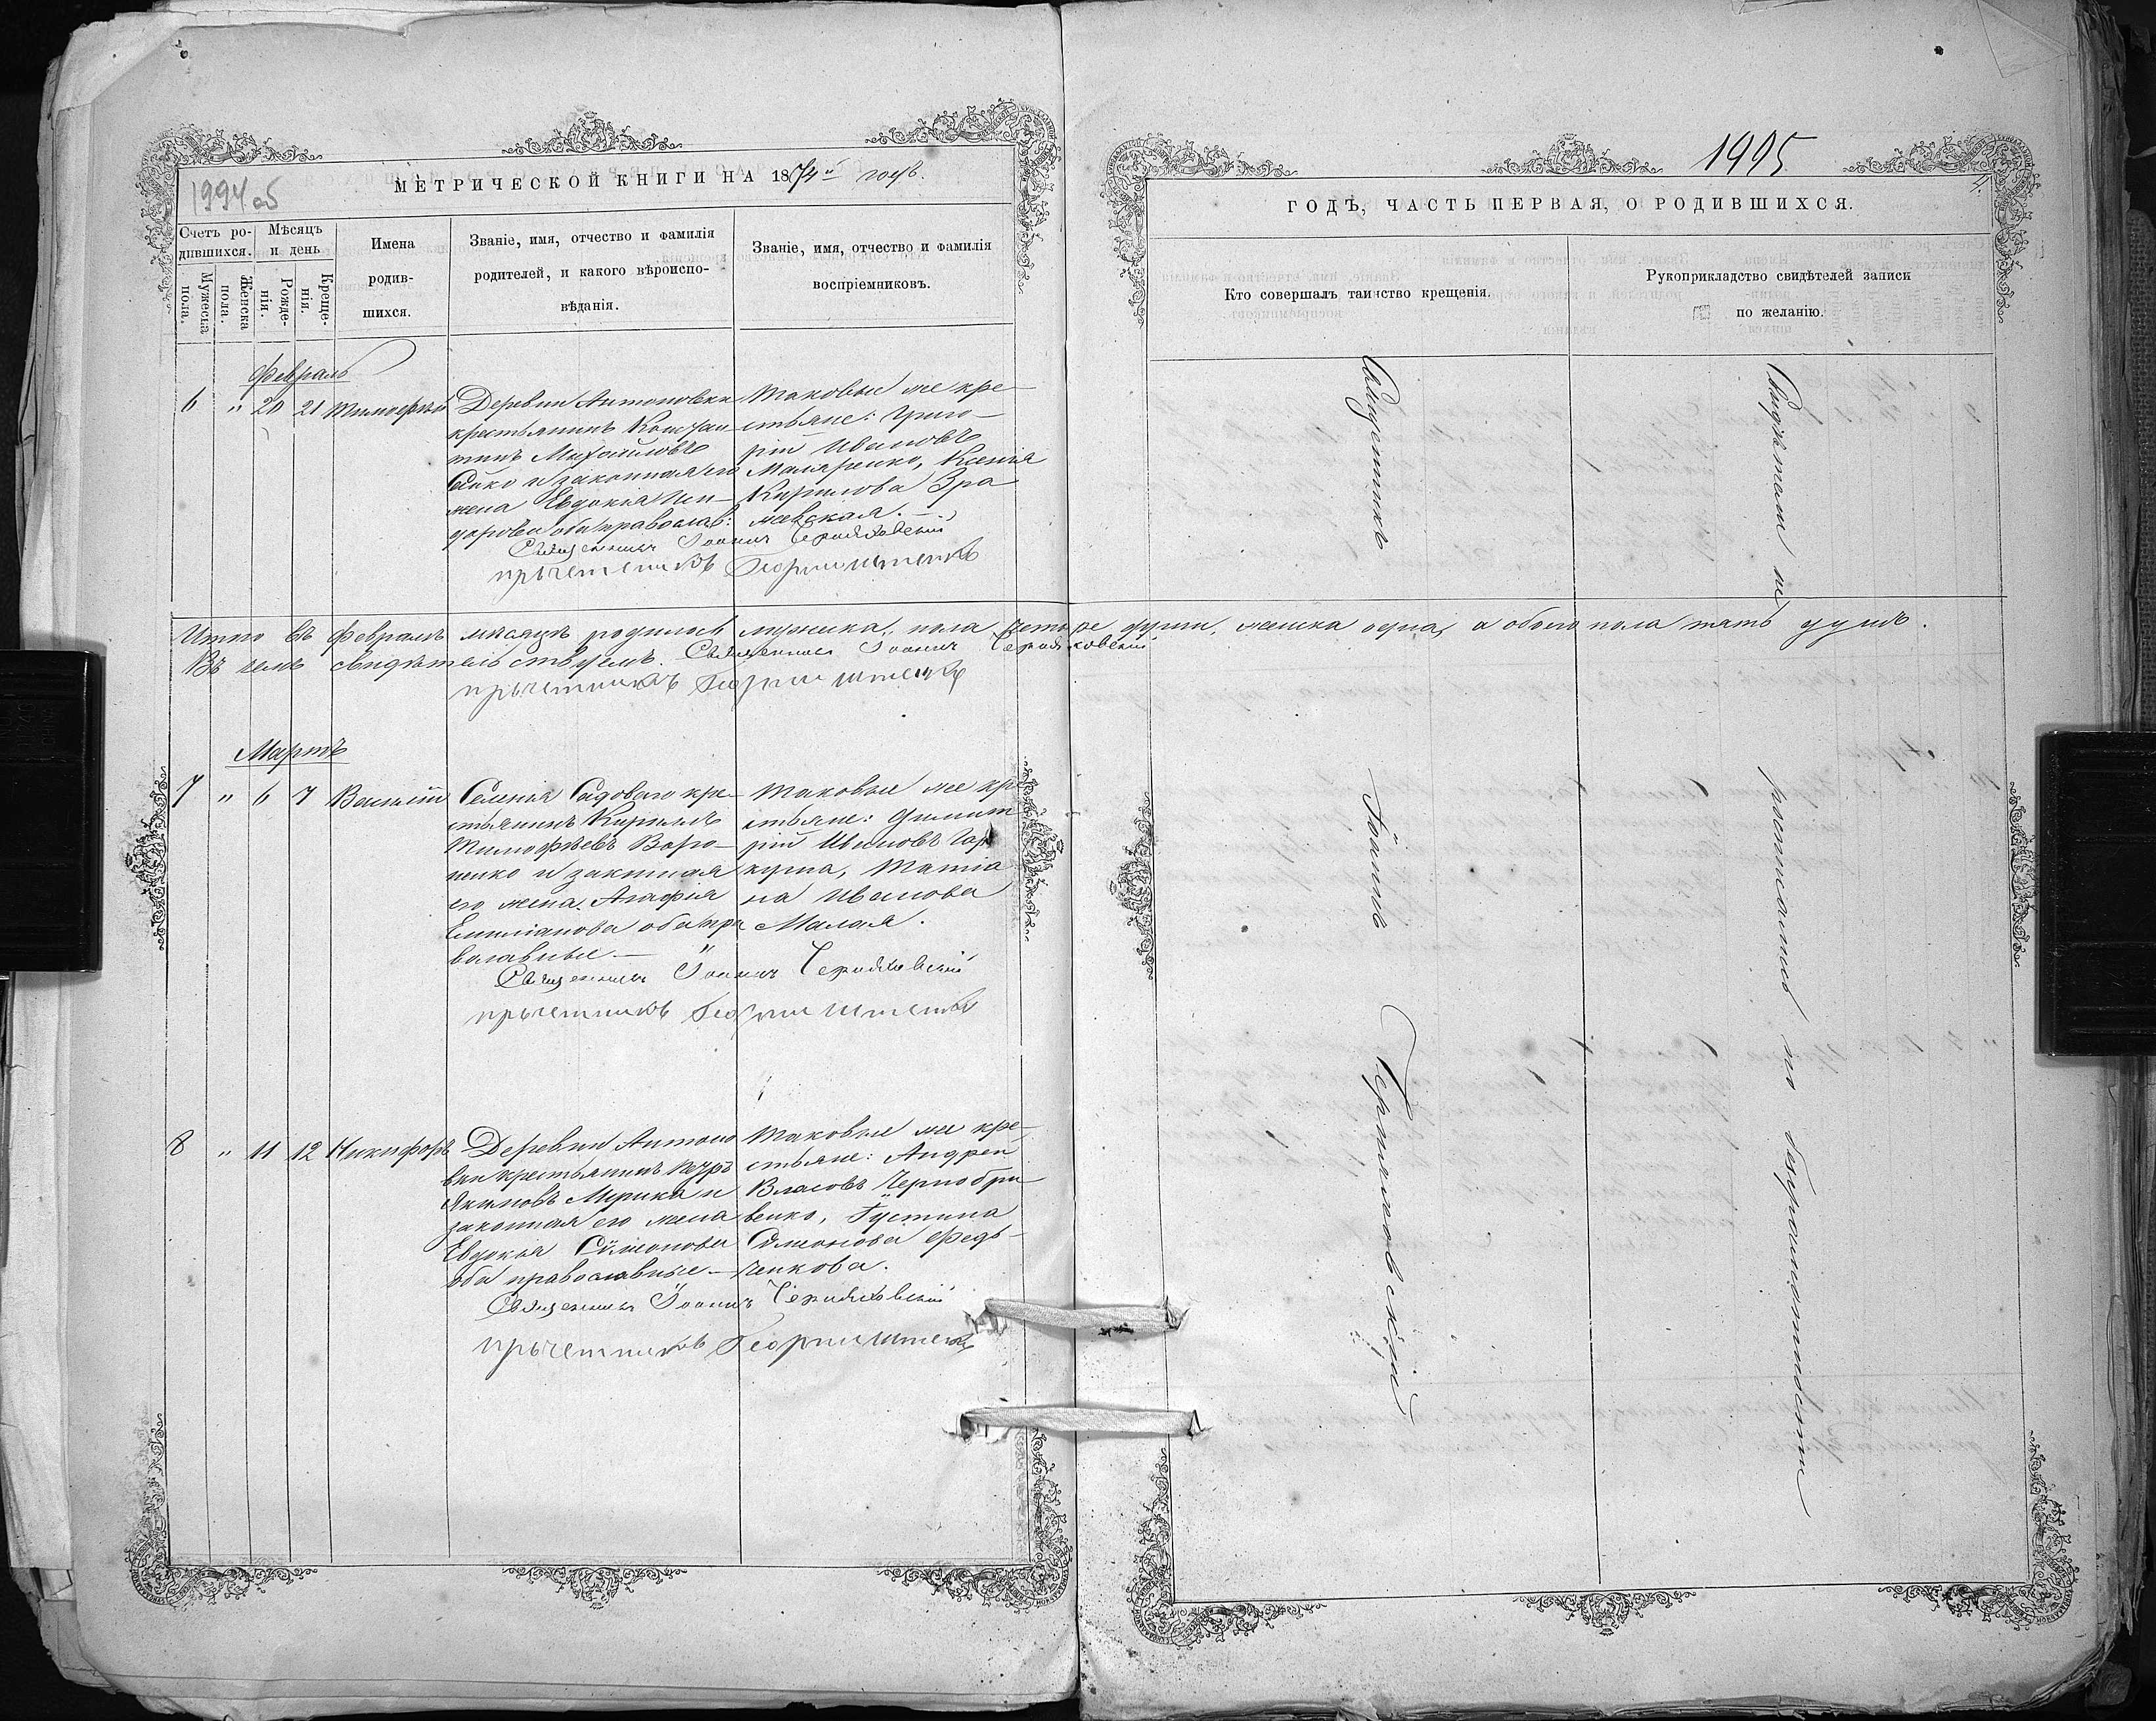 1994 об
МЕТРИЧЕСКОЙ КНИГИ НА 1874й годъ.
Счетъ ро-
дившихся.
Мѣсяцъ
и день
Мужеска
пола.
Женска
пола.
Рожде-
нія.
Креще-
нія.
Имена
родив-
шихся.
Званіе, имя, отчество и фамилія
родителей, и какого вѣроиспо-
вѣданія.
Званіе, имя, отчество и фамилія
воспріемниковъ.
Февраль
6 " 20 21 Тимофей
Деревни Антоновки
крестьянинъ Констан
тинъ Михайловъ
Сайко и законная его
жена Евдокія Иси-
дорова оба православ:
таковые же кре-
стьяне: Григо-
рій Ивановъ
Маляренко, Ксенія
Кирилова Зра
жевская.
Священникъ Іоаннъ Черняховскій
причетникъ Георгій
Итого въ Февралѣ мѣсяцѣ родилось мужеска пола четыре души, женска одна, а обоего пола пять душъ.
Въ чемъ свидѣтельствуемъ. Священникъ Іоаннъ Черняховскій
причетникъ Георгій
Мартъ
7 " 6 7 Василій
Селенія Садоваго кре-
стьянинъ Кириллъ
Тимофѣевъ Воро-
ненко и законная
его жена Агафія
Емиліанова оба пра
вославные.
таковые же кре
стьяне: Димит
рій Ивановъ Гар
куша, Татіа
на Иванова
Малая.
Священникъ Іоаннъ Черняховскій
причетникъ Георгій
8 " 11 12 Никифоръ
Деревни Антоно
вки крестьянинъ Петръ
Якимовъ Мирика и
законная его жена
Евдокія Сѵмеонова
оба православные
таковые же кре-
стьяне: Андрей
Власовъ Чернобри-
венко, Іустина
Сѵмеонова Федь-
ченкова.
Священникъ Іоаннъ Черняховскій
причетникъ Георгій
1995
ГОДѢ, ЧАСТЬ ПЕРВАЯ, О РОДИВШИХСЯ.
Кто совершалъ таинство крещенія.
Рукоприкладство свидѣтелей записи
по желанію.
Священникъ Іоаннъ Черняховскій
Свидѣтели не росписались по безграмотности